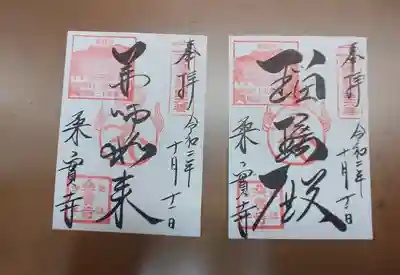 奉拝
令和二年
十月十一日
薬師如来
桑實寺
奉拝
令和二年
十月十一日
瑠璃殿
桑實寺